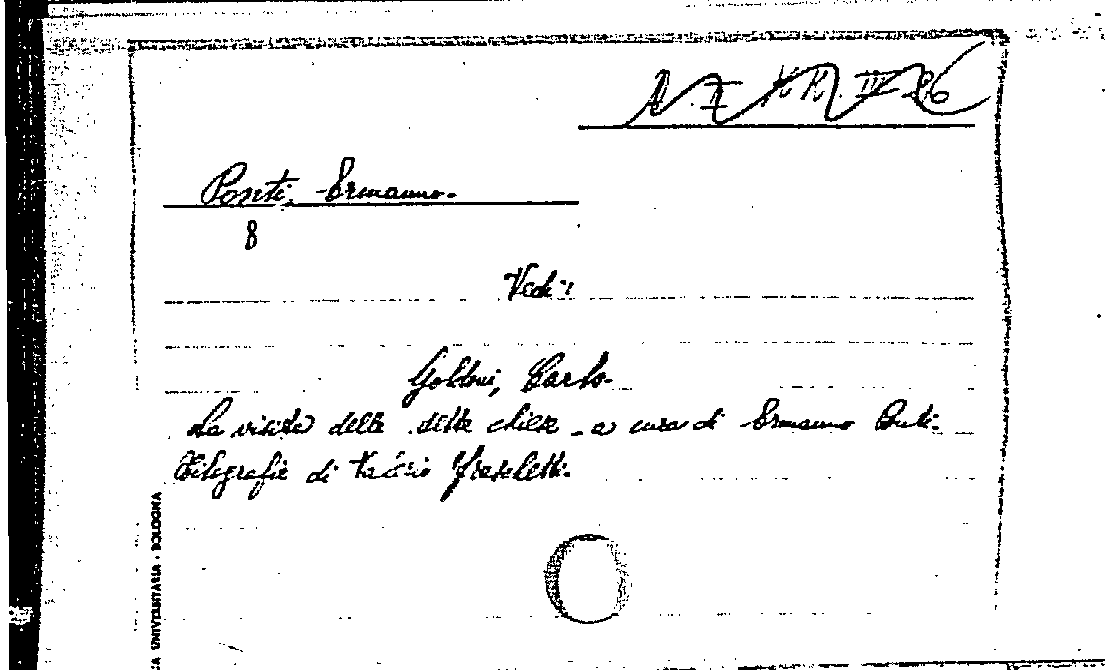 Ponti, Ermanno.
8
Vedi:
Goldoni, Carlo.
La visita delle sette chiese - a cura di Ermanno Ponti.
Xilografie di
CA UNIVERSITARIA - BOLOGNA